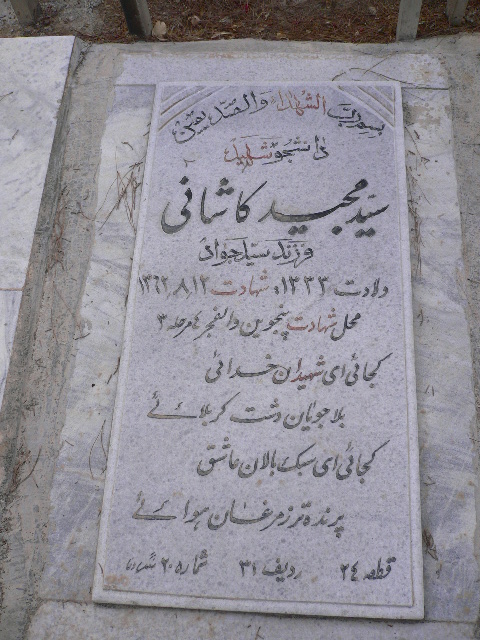 بسم رب الشهداء والصدیقین
دانشجو شهید
سید مجید کاشانی
فرزند سید جواد
ولادت ۱۳۳۳ شهادت ۱۳۶۲.۸.۱۲
محل شهادت پنجوین والفجر ۴ مرحله ۳
کجائی ای شهیدان خدائی
بلا جویان دشت کربلائے
کجائی ای سبک بالان عاشق
پرنده تر ز مرغان هوائے
قطعه ۲۴ ردیف ۳۱ شماره ۲۰